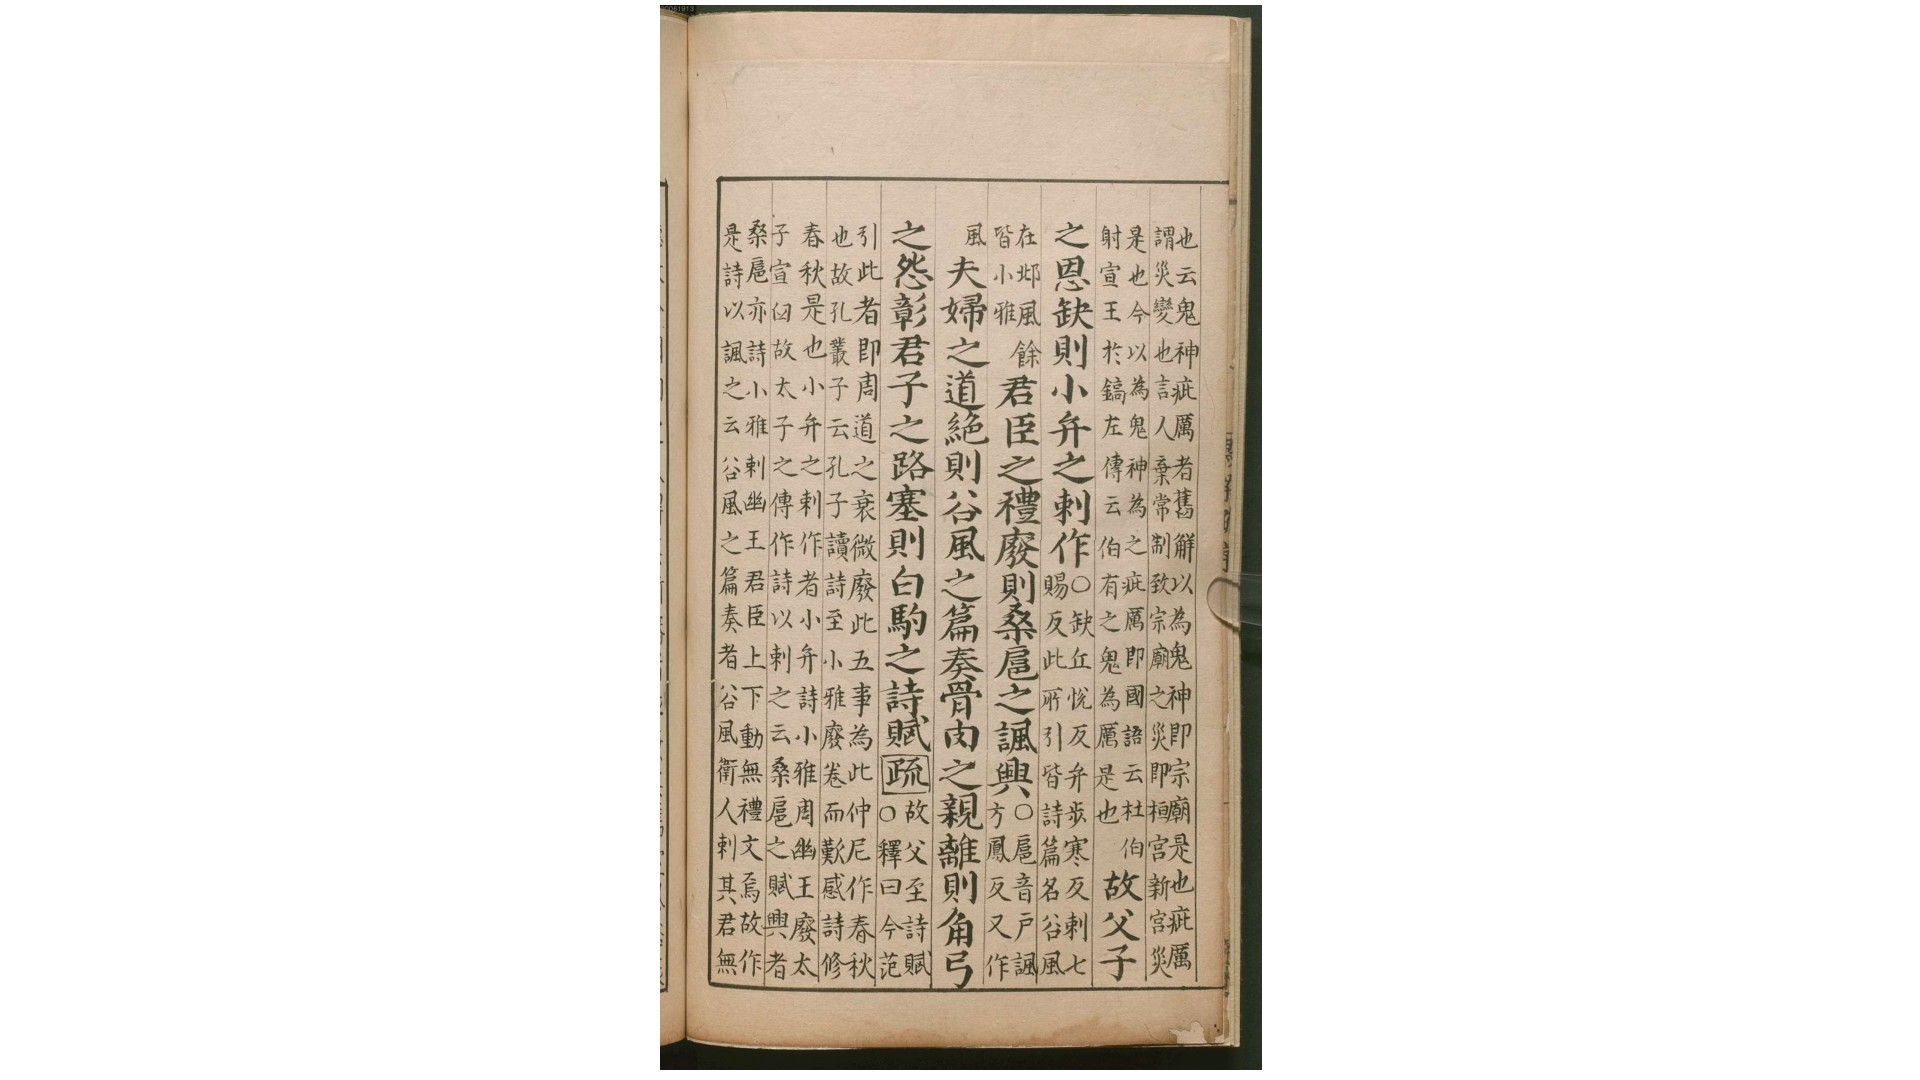 也云鬼神疵厲者舊解以為鬼神即宗廟是也疵厲
謂災變也言人棄常制致宗廟之災即桓宮新宮災
是也今以為鬼神為之疵厲即國語云杜伯
射宣王於鎬左傳云伯有之鬼為厲是也
故父子
之恩缺則小弁之刺作
○缺丘悅反弁步寒反刺七
賜反此所引皆詩篇名谷風
在邶風餘
皆小雅
君臣之禮廢則桑扈之諷興
○扈音戶諷
方鳳反又作
風
夫婦之道絕則谷風之篇奏骨肉之親離則角弓
之怨彰君子之路塞則白駒之詩賦
疏
故父至詩賦
○釋曰今范
引此者即周道之衰微廢此五事為此仲尼作春秋
也故孔叢子云孔子讀詩至小雅廢卷而歎感詩修
春秋是也小弁之刺作者小弁詩小雅周幽王廢太
子宣臼故太子之傳作詩以刺之云桑扈之賦興者
桑扈亦詩小雅刺幽王君臣上下動無禮文焉故作
是詩以諷之云谷風之篇奏者谷風衛人刺其君無